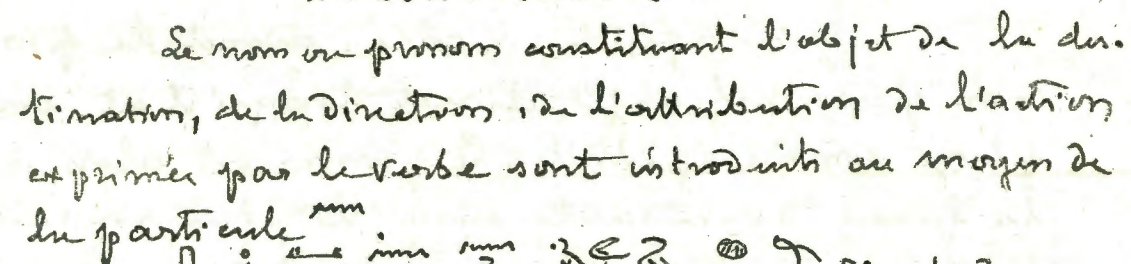 Le nom ou pronom constituant l'objet de la des-
tination, de la direction, de l'attribution de l'action
exprimée par le verbe sont introduits au moyen de
la particule